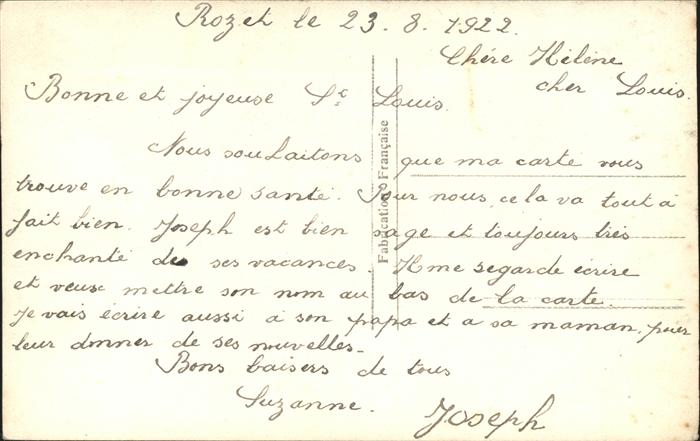 Rozet le 23. 8. 1922.
Chére Hélène
cher Louis.
Bonne et joyeuse St Louis.
Nous souhaitons que ma carte vous
trouve en bonne santé. Pour nous, cela va tout à
fait bien. Joseph est bien sage et toujours très
enchanté de ses vacances. Il me regarde écrire
et veux mettre son nom au bas de la carte.
Je vais écrire aussi à son papa et a sa maman, pour
leur donner de ses nouvelles.
Bons baisers de tous
Suzanne.
Joseph
Fabrication Française